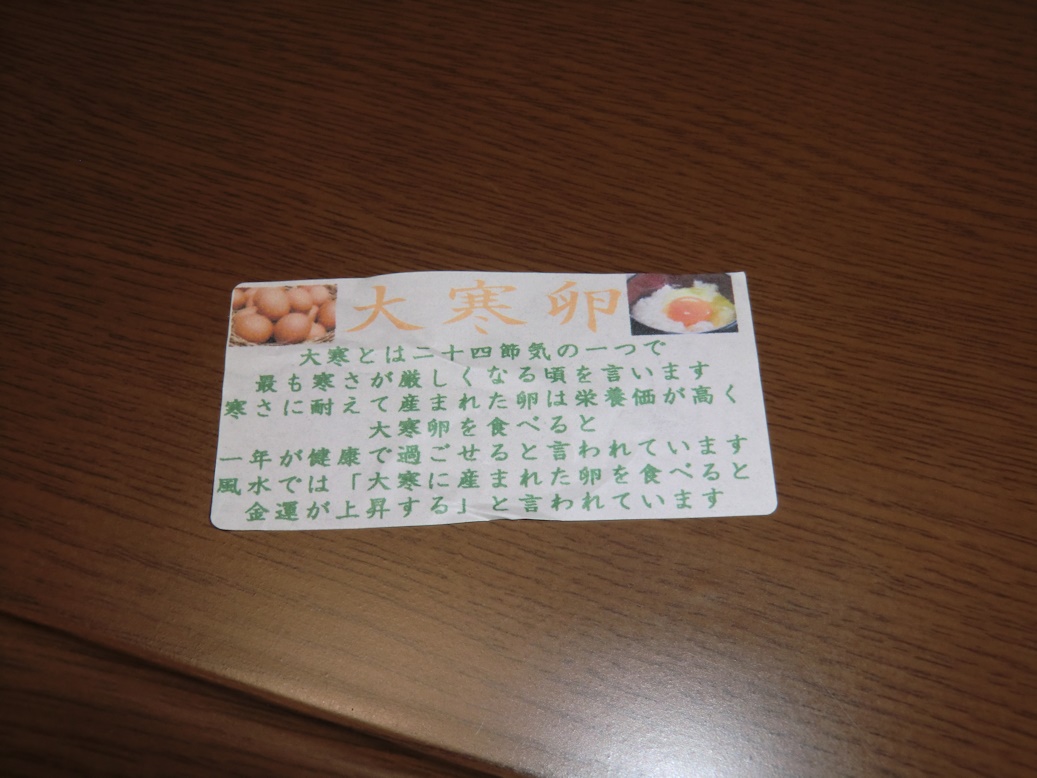 大寒卵
大寒とは二十四節気の一つで
最も寒さが厳しくなる頃を言います
寒さに耐えて産まれた卵は栄養価が高く
大寒卵を食べると
一年が健康で過ごせると言われています
風水では「大寒に産まれた卵を食べると
金運が上昇する」と言われています